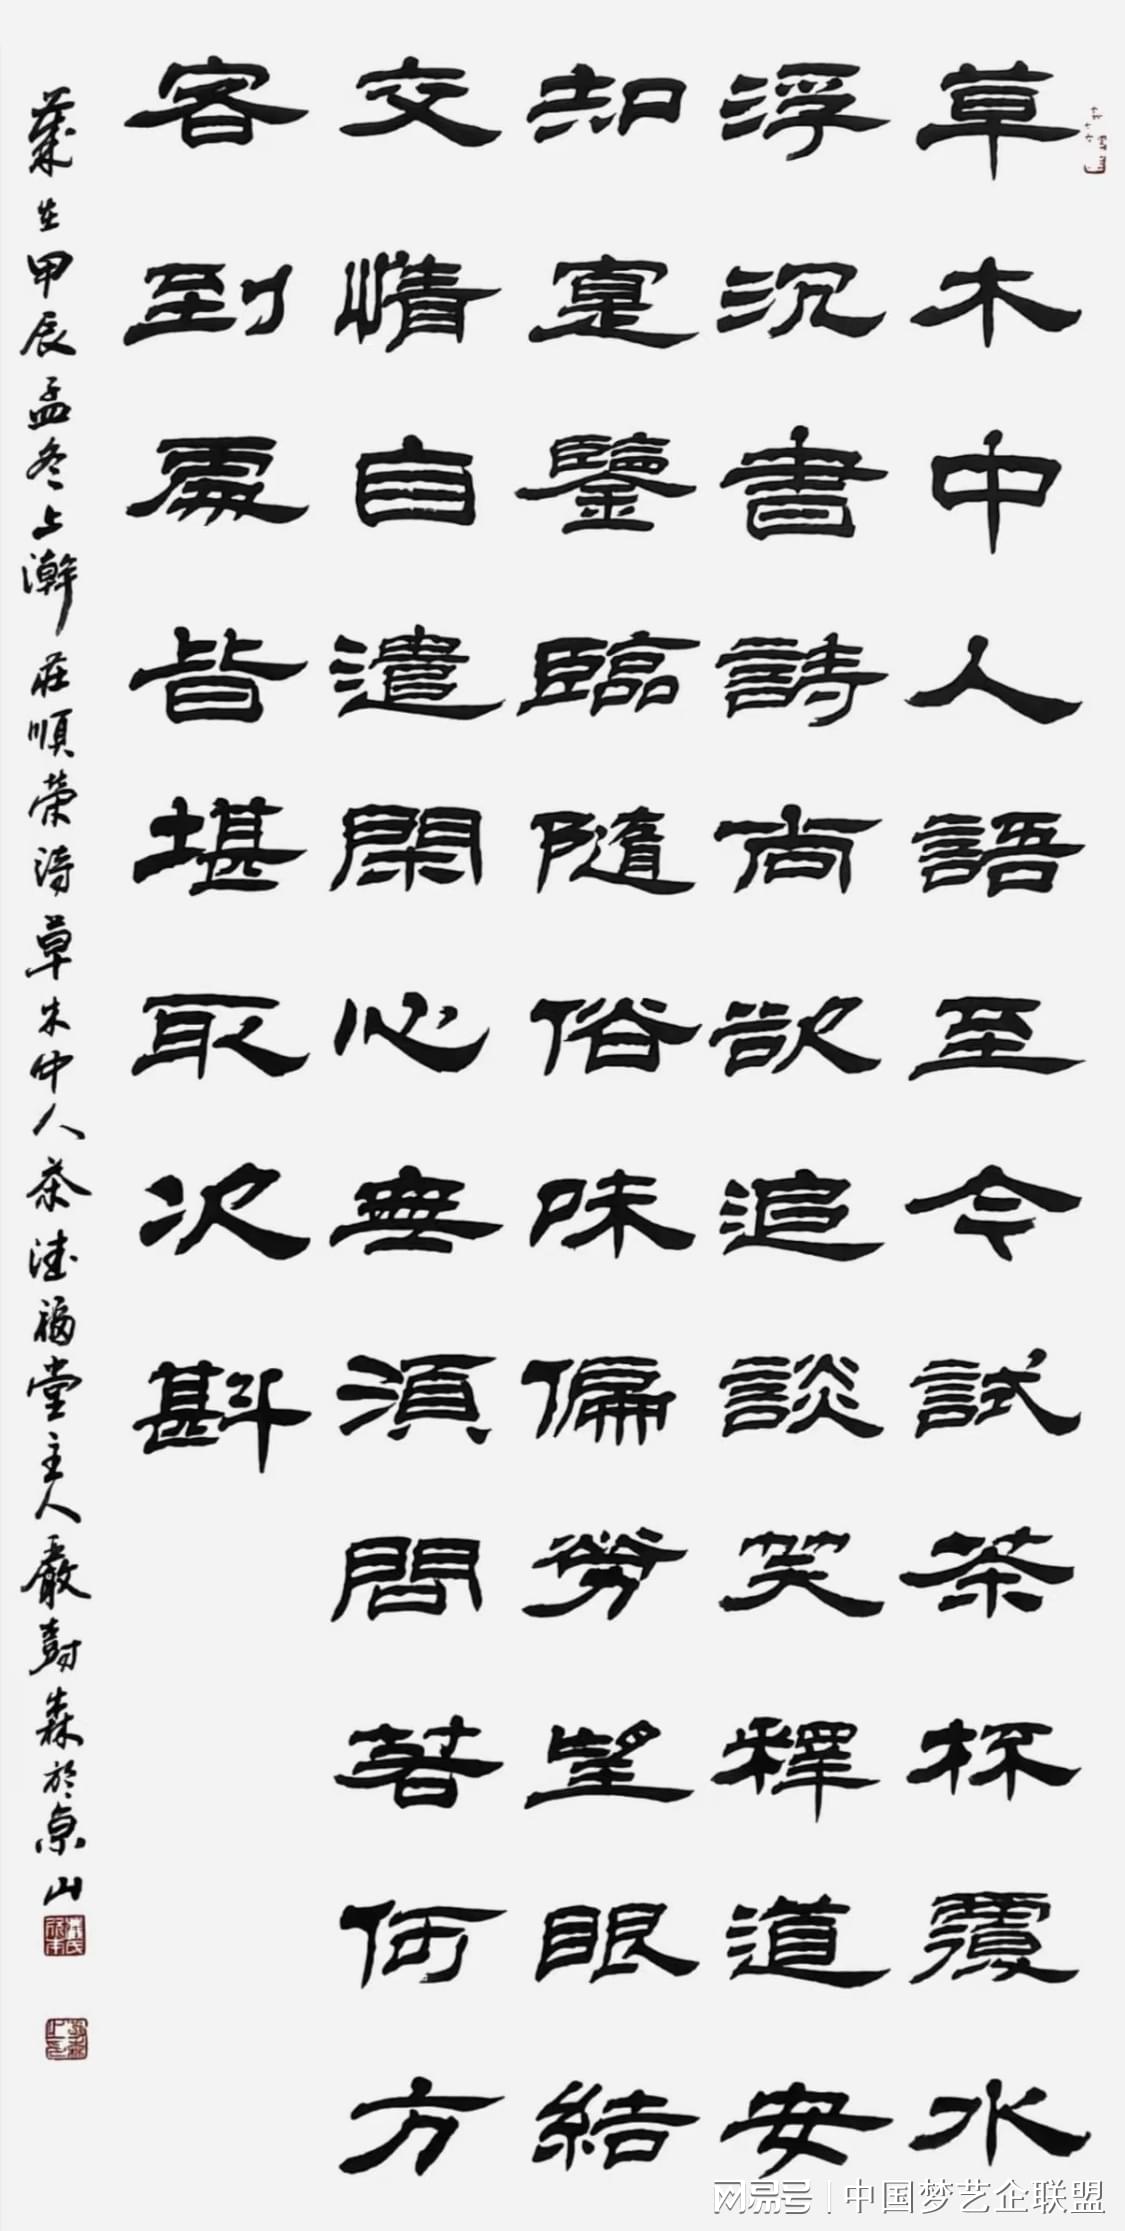 草木中人語至今試茶杯覆水
浮沉書詩尚欲追談笑釋道安
知寔鑒臨隨俗味偏勞望眼結
交情自遣閑心無須問若何方
客到處皆堪取次斟
歲在甲辰孟冬上澣莊順榮詩草木中人茶德福堂主人嚴壽森於京山
网易号 | 中国梦艺企联盟